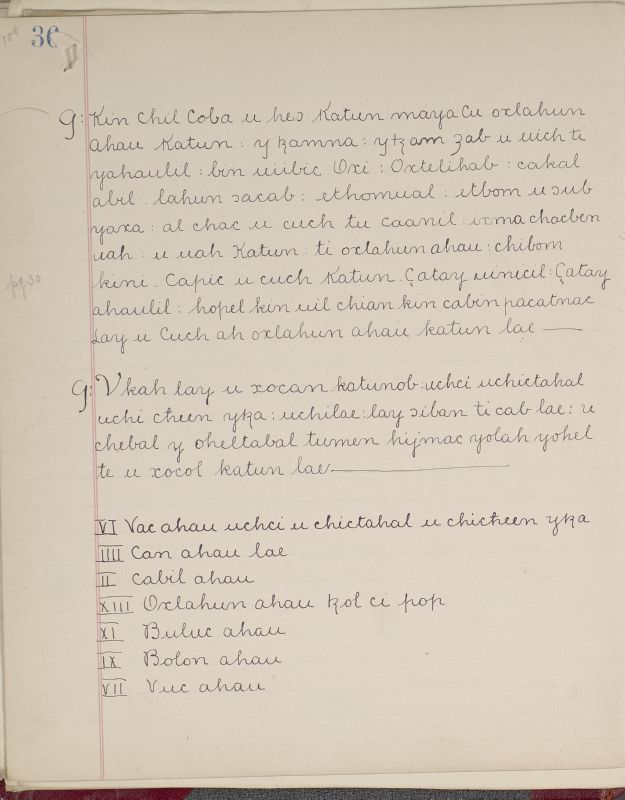 100
36
9: Kin Chil Coba u hes Katun mayaCu oxlahun
ahau Katun : y ꜩamna : y ꜩam ꜫab u uich ti
yahaulil : bin uiibic Oxi : Oxtelihab : cakal
abil . lahun ɔacab : ethomual : etbom u sub
yaxa : al chac u cuch tu caanil : ixma chacben
uah : u uah Katun : ti oxlahun ahau : chibom
kini . Capic u cuch Katun . Çatay uinicil : Çatay
pg 30
ahaulil : hopel kin uil chian kin cabin pacatnac
Lay u Cuch ah oxlahun ahau katun lae —
9: Vkah lay u xocan katunob : uchci uchictahal
uchi cħeen yꜩa : uchilae : lay ɔiban ti cab lae : u
chebal y oheltabal tumen hijmac yolah yohel
te u xocol katun lae —
VI Vac ahau uchci u chictahal u chicħeen yꜩa
IIII Can ahau lae
II Cabil ahau
XIII Oxlahun ahau ꜩol ci pop
XI Buluc ahau
IX Bolon ahau
VII Vuc ahau